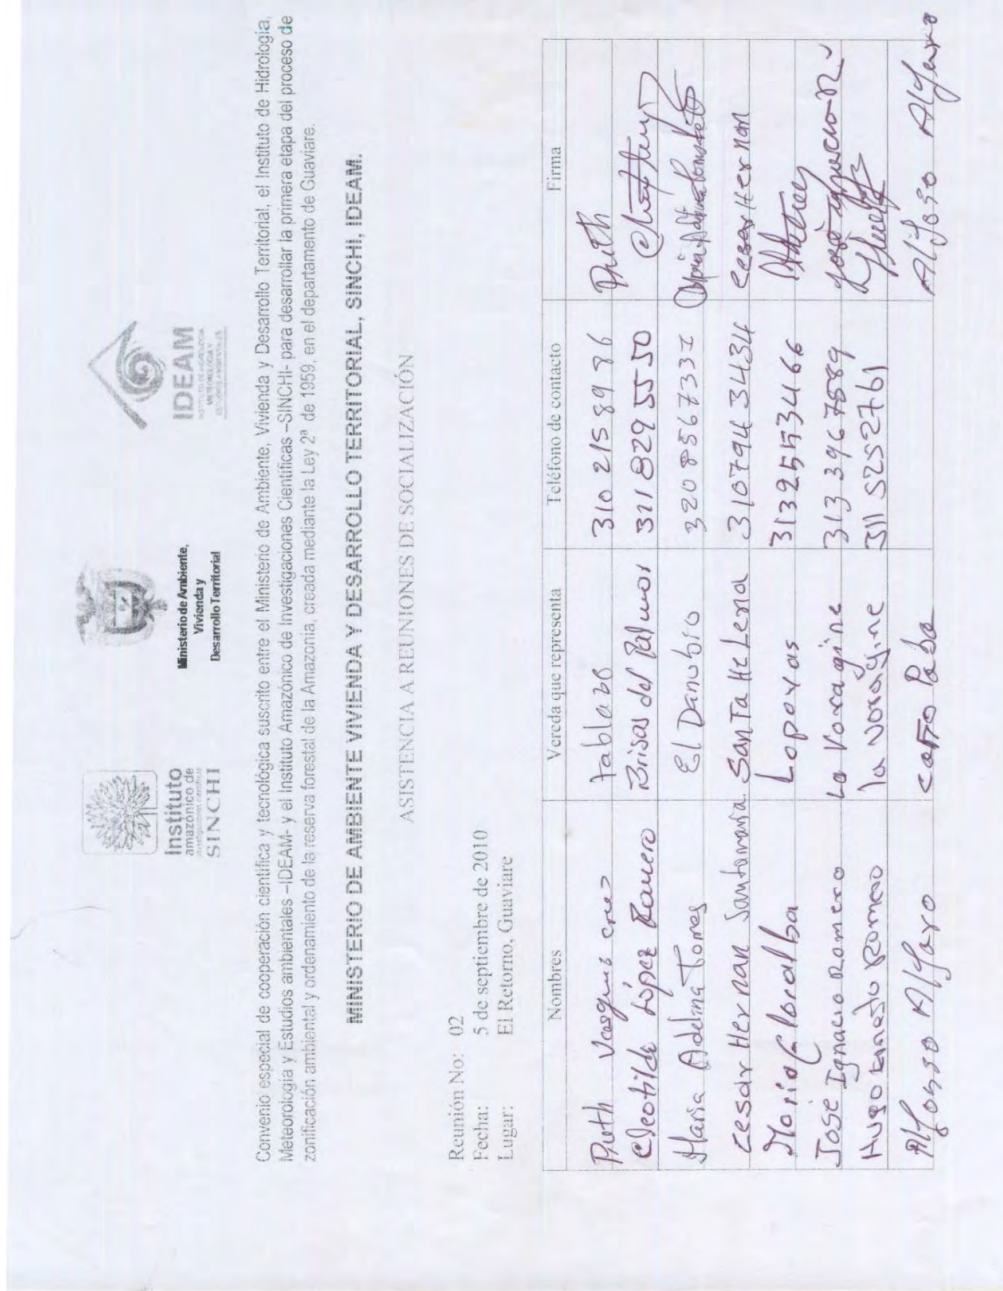 Instituto
amazónico de
investigaciones científicas
SINCHI
Ministerio de Ambiente,
Vivienda y
Desarrollo Territorial
IDEAM
INSTITUTO DE HIDROLOGÍA
METEOROLOGÍA Y
ESTUDIOS AMBIENTALES
Convenio especial de cooperación científica y tecnológica suscrito entre el Ministerio de Ambiente, Vivienda y Desarrollo Territorial, el Instituto de Hidrología,
Meteorología y Estudios ambientales –IDEAM- y el Instituto Amazónico de Investigaciones Científicas –SINCHI- para desarrollar la primera etapa del proceso de
zonificación ambiental y ordenamiento de la reserva forestal de la Amazonia, creada mediante la Ley 2ª de 1959, en el departamento de Guaviare.
MINISTERIO DE AMBIENTE VIVIENDA Y DESARROLLO TERRITORIAL, SINCHI, IDEAM.
ASISTENCIA A REUNIONES DE SOCIALIZACIÓN
Reunión No: 02
Fecha: 5 de septiembre de 2010
Lugar: El Retorno, Guaviare
Nombres Vereda que representa Teléfono de contacto Firma
Ruth Vanegas cruz tablazo 310 215 89 86 Ruth
Cleotilde López Ranero Brisas del Palmar 311 829 55 50
Maria Adelina Torres El Danubio 320 8567332
cesar Hernan Santamaria Santa Helena 310794 3434 cesar Hernan
Maria Gloralba Lopoyas 3132553466
Jose Ignacio Romero La Voragine 313 3967589
Hugo Ernesto Romero la voragine 311 5252761
Alfonso Alfaro caño Paba Alfoso Alfaro